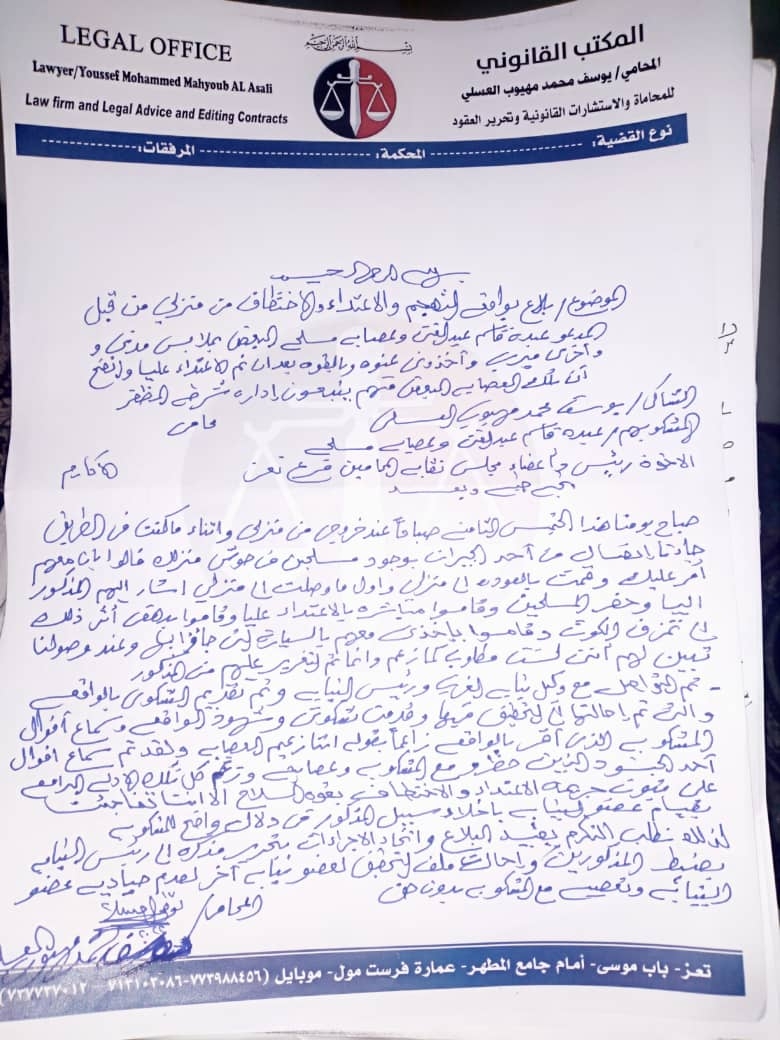 LEGAL OFFICE
Lawyer/Youssef Mohammed Mahyoub AL Asali
Law firm and Legal Advice and Editing Contracts
بسم الله الرحمن الرحيم
المكتب القانوني
المحامي/ يوسف محمد مهيوب العسلي
للمحاماة والاستشارات القانونية وتحرير العقود
نوع القضية: المحكمة: المرفقات:
بسم الله الرحمن الرحيم
الموضوع/ بلاغ بواقعة التهجم والاعتداء والاختطاف من منزلي من قبل
المدعو عبده قاسم عبدالغني وعصابة مسلحة البعض بملابس مدني و
وآخرين ميري وأخذوني عنوة وبالقوة بعد ان تم الاعتداء عليا واتضح
أن تلك العصابة البعض منهم يتبعون إدارة شرطة المظفر
الشاكي/ يوسف محمد مهيوب العسلي محامي
المشكو بهم/ عبده قاسم عبدالغني وعصابة مسلحة
الاخوة رئيس وأعضاء مجلس نقابة المحامين فرع تعز الأكارم
تحية طيبة وبعد
صباح يومنا هذا الخميس الثامنة صباحاً عند خروجي من منزلي واثناء ما كنت في الطريق
جاءنا إتصال من أحد الجيران بوجود مسلحين في حوش منزلك قالوا بان معهم
أمر عليك وقمت بالعودة الى منزلي واول ما وصلت الى منزلي اشار اليهم المذكور
اليا وحضر المسلحين وقاموا مباشرة بالاعتداء عليا وقاموا أثر ذلك
الى تمزق الكوت وقاموا بأخذي معهم بالسيارة وعند وصولنا
تبين لهم أنني لست مطلوب كما زعم وانما تم التغرير عليهم من المذكور
- تم التواصل مع وكيل نيابة الغربية ورئيس النيابة وتم تقديم الشكوى بالواقعة
والتي تم إحالتها الى التحقيق فيها وقدمت شكوتي وشهود الواقعة وسماع أقوال
المشكو به الذي أقر بالواقعة زاعماً بقوله العصابة ولقد تم سماع اقوال
أحد الجنود الذين حضروا مع المشكو به وعصابته ورغم كل تلك الأدلة الدامغة
على ثبوت جريمة الاعتداء والاختطاف بقوة السلاح الا اننا تفاجئت
بقيام عضو النيابة بإخلاء سبيل المذكور في دلالة واضحة للمشكو به
لذلك نطلب التكرم بقيد البلاغ واتخاذ الاجراءات بتحرير مذكرة الى رئيس النيابة
بضبط المذكورين واحالة ملف التحقيق لعضو نيابة آخر لعدم حيادية عضو
النيابة وتعصبه مع المشكو به بدون حق
المحامي
تعز- باب موسى- أمام جامع المطهر- عمارة فرست مول- موبايل (٧٧٣٩٨٨٤٥٦-٧١٣١٠٣٠٨٦ - ٧٣٧٧٣٧٠١٢)